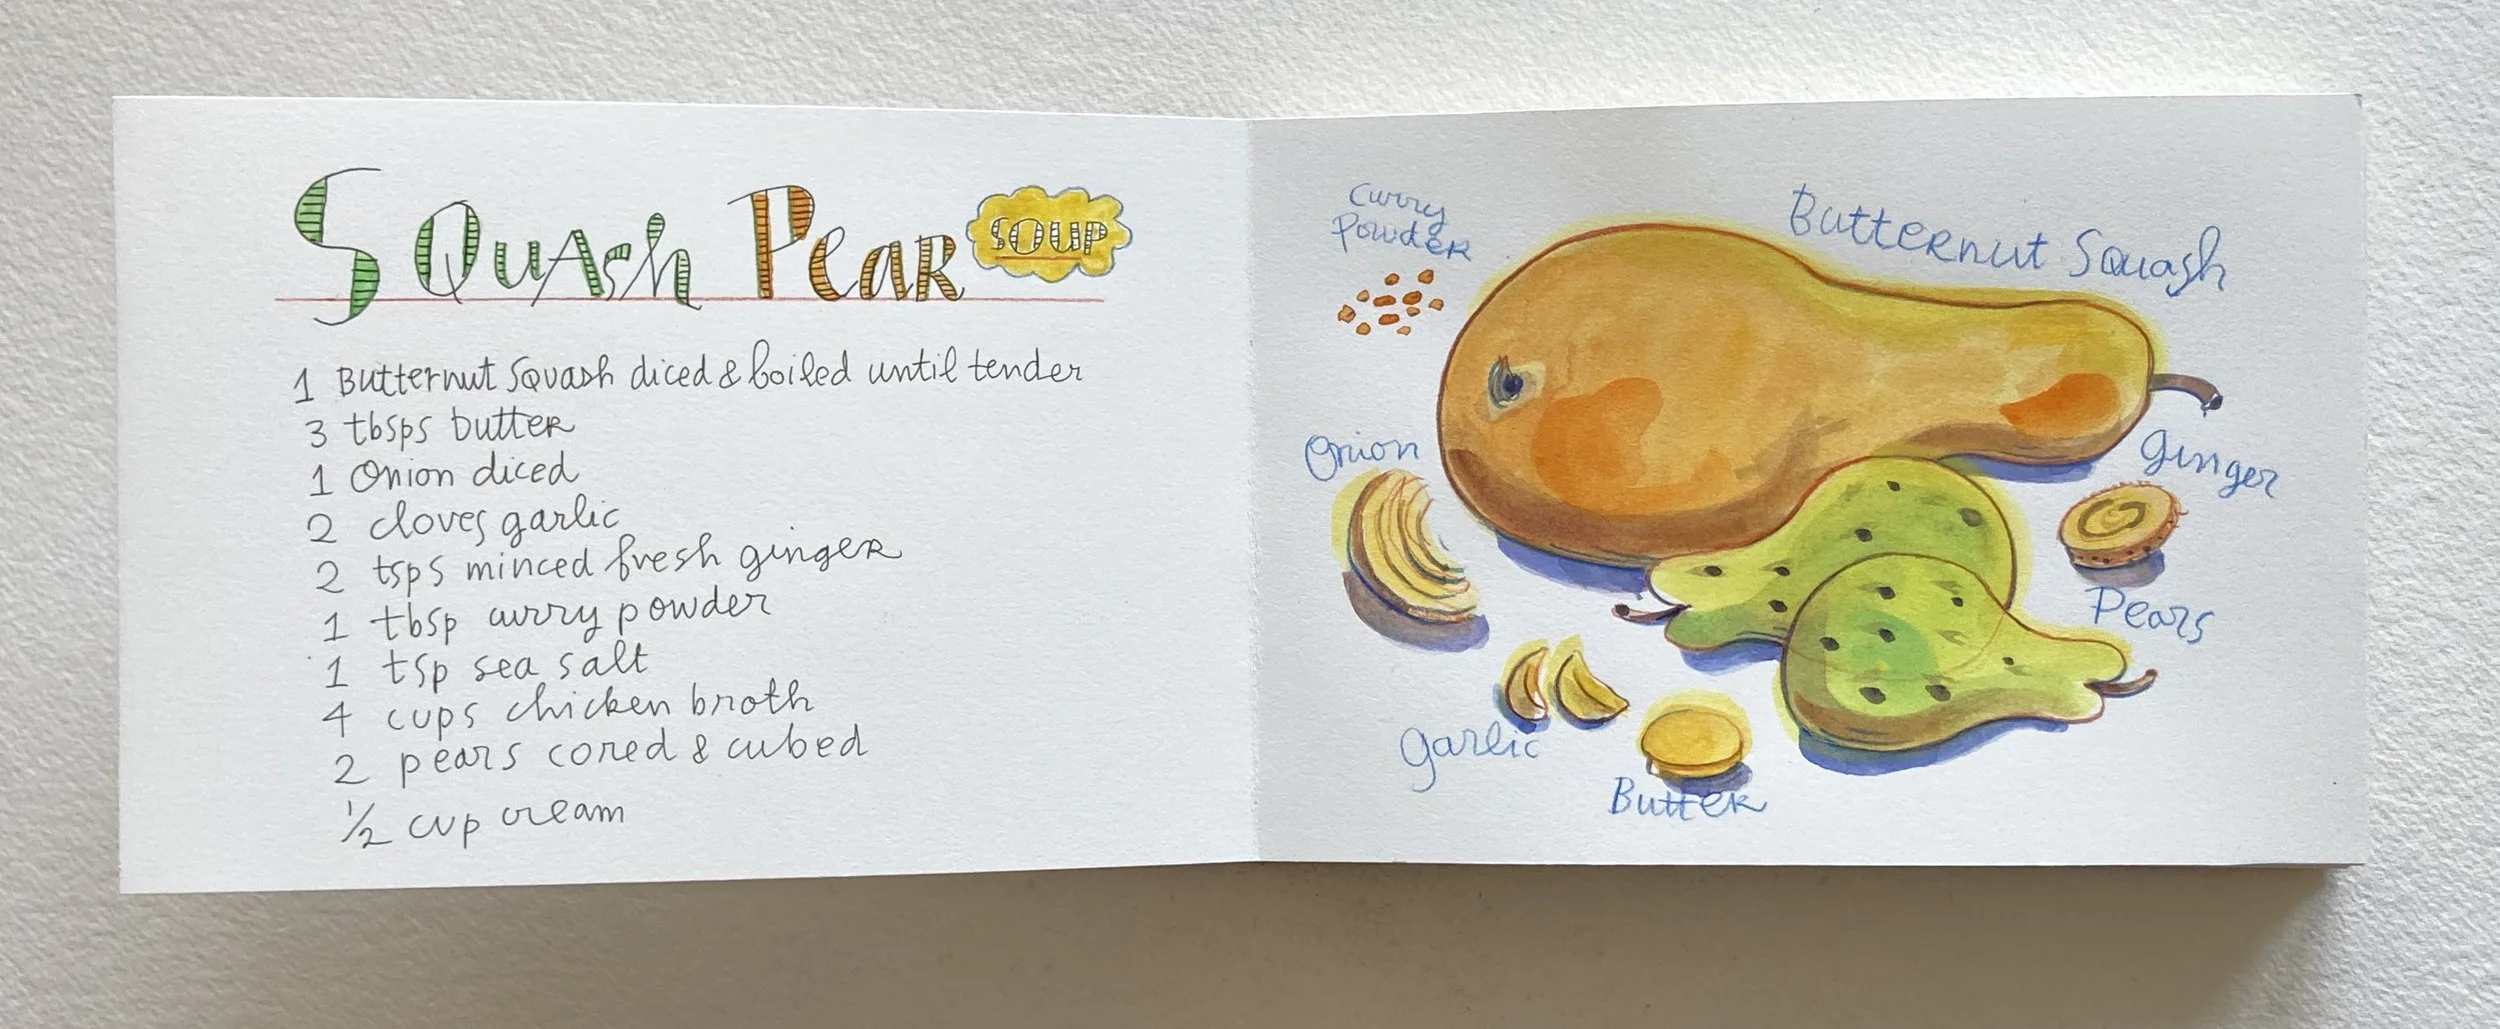 Squash Pear SOUP
1 Butternut Squash diced & boiled until tender
3 tbsps butter
1 Onion diced
2 cloves garlic
2 tsps minced fresh ginger
1 tbsp curry powder
1 tsp sea salt
4 cups chicken broth
2 pears cored & cubed
1/2 cup cream
Curry
Powder
Butternut Squash
Onion
Ginger
Pears
Garlic
Butter